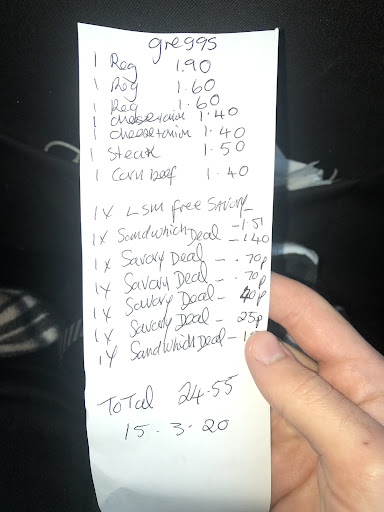 greggs
1 Reg 1.90
1 Reg 1.60
1 Reg 1.60
1 cheese+onion 1.40
1 cheese+onion 1.40
1 Steak 1.50
1 Corn beef 1.40
1X LSM free Savory
1X Sandwhich Deal -1.51
1X Savory Deal - 1.40
1X Savory Deal - .70p
1X Savory Deal - .70p
1X Savory Deal - 40p
1X Savory Deal - 25p
1X Sandwhich Deal - 1
ToTal 24.55
15.3.20